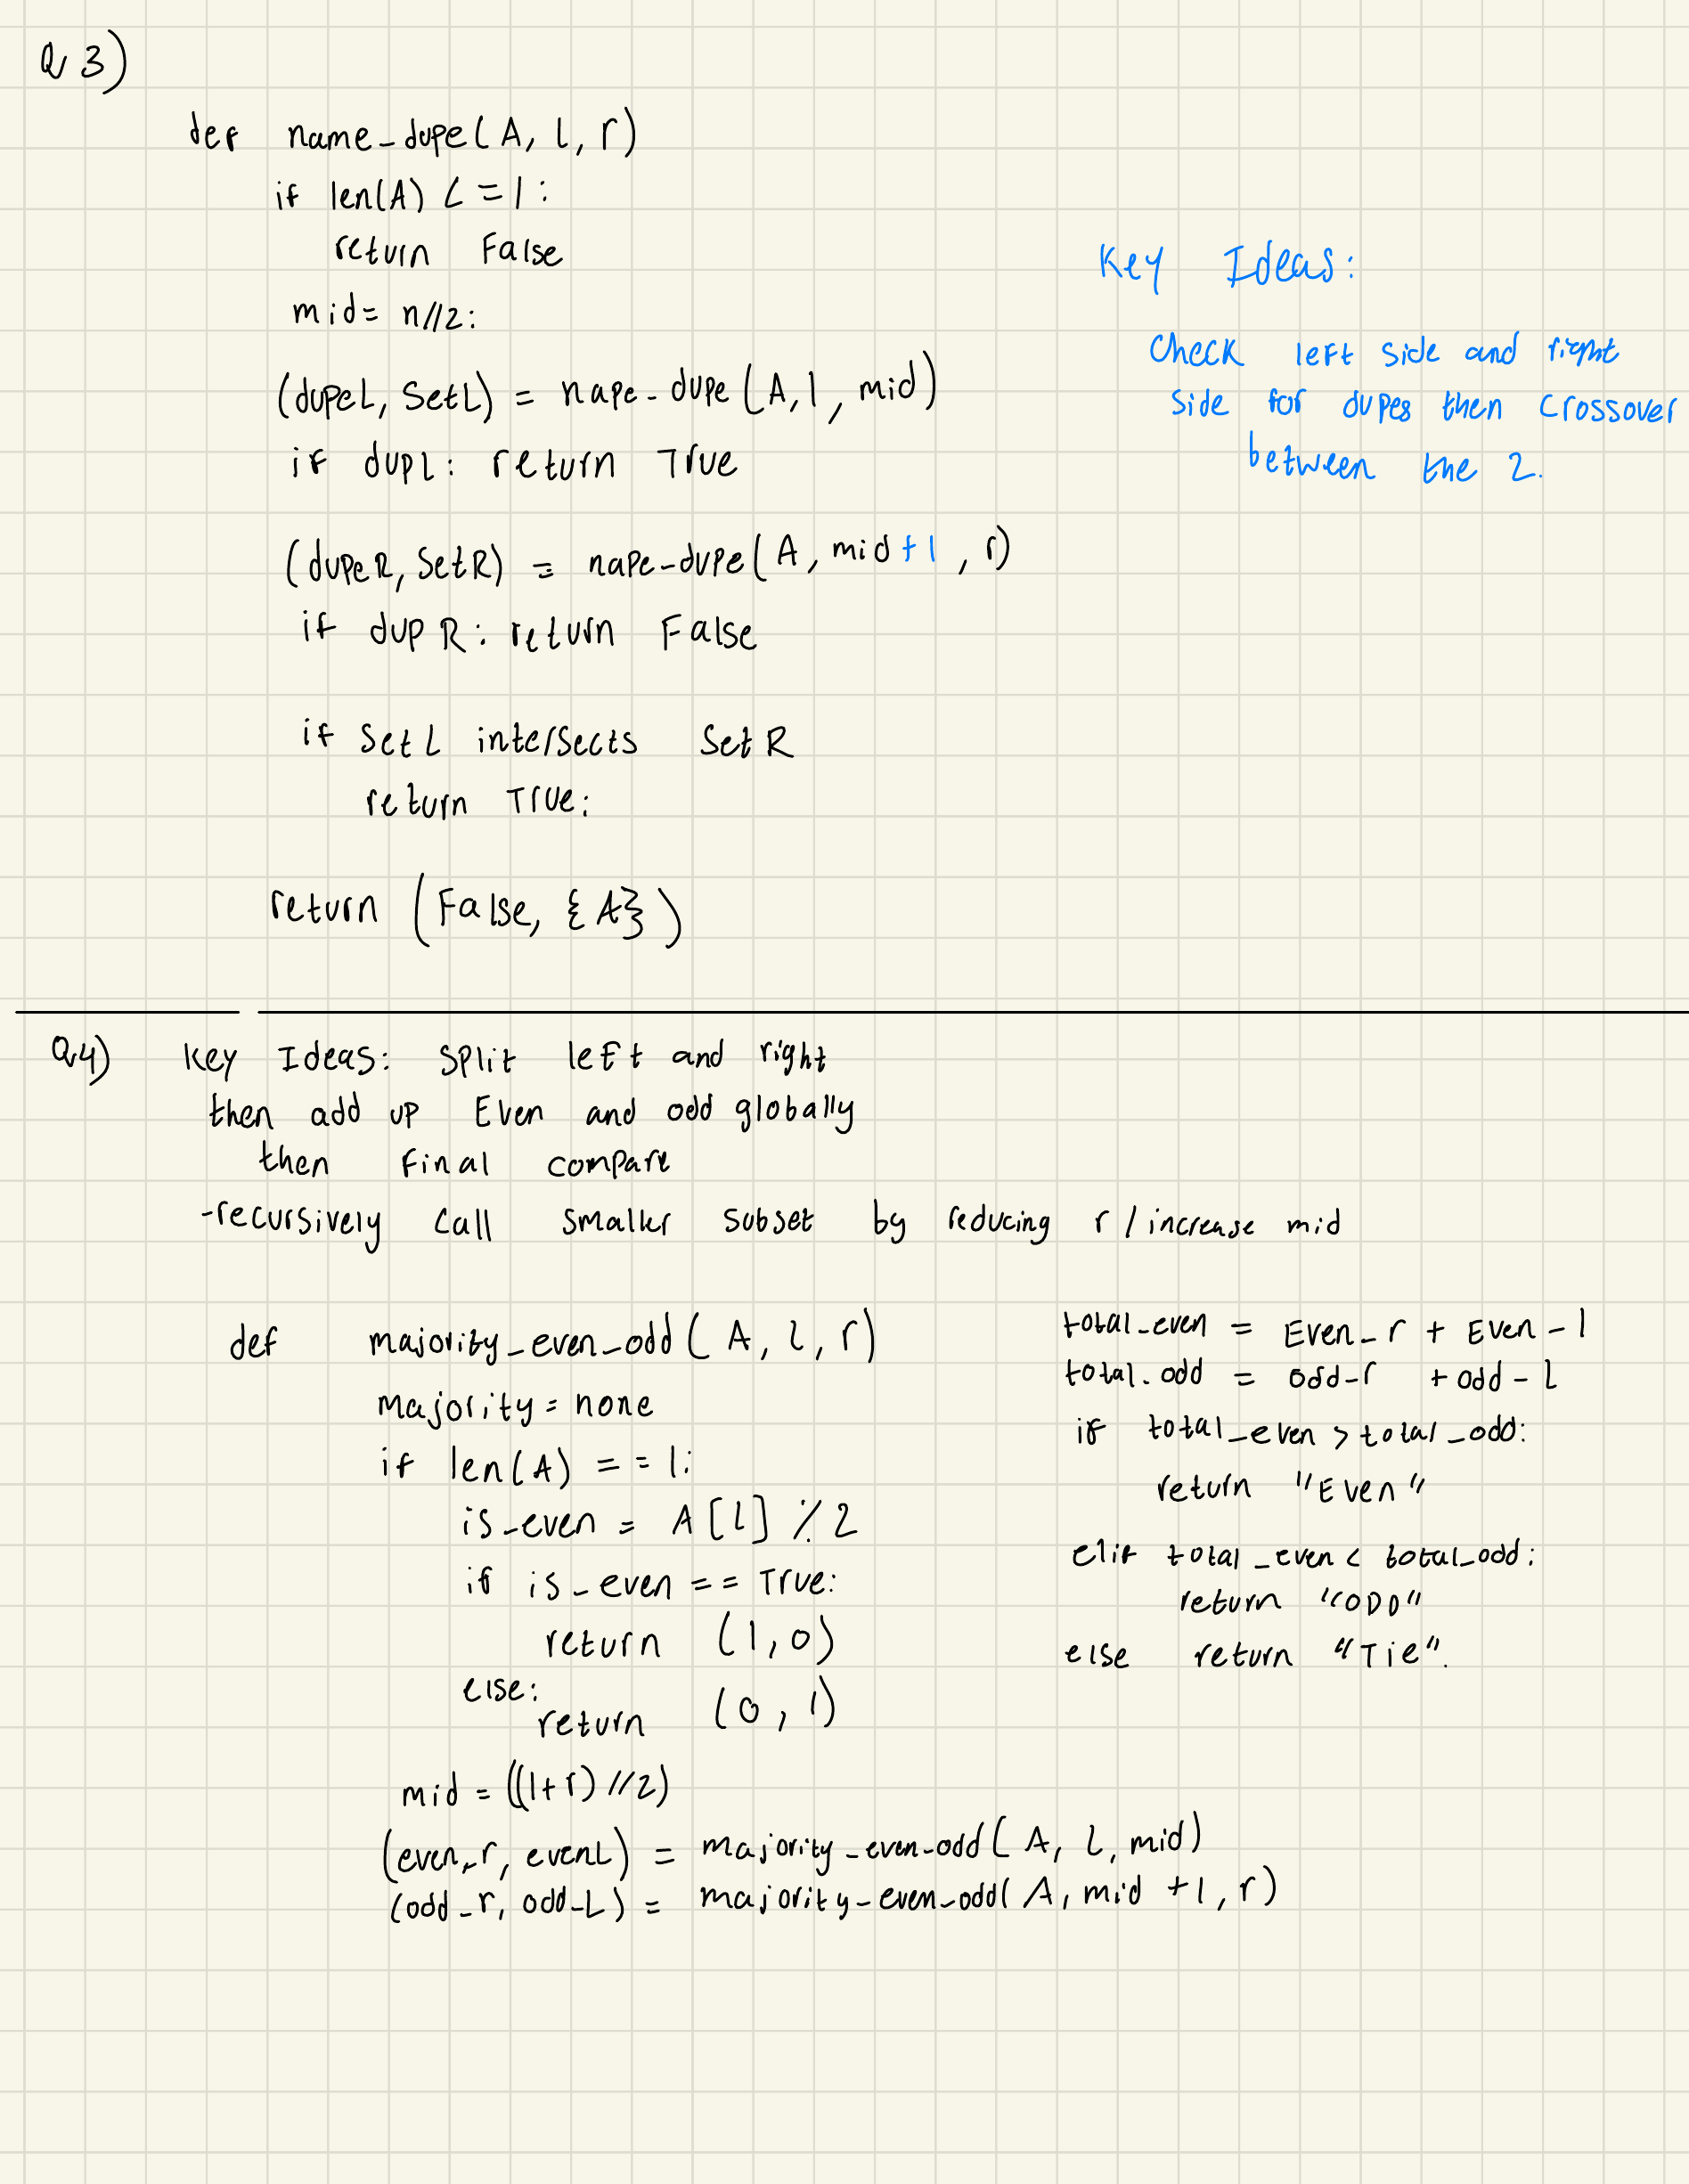 Q3)
def name_dupe(A, l, r)
if len(A) <= 1:
return False
mid = n//2:
(dupeL, SetL) = nape-dupe(A, l, mid)
if dupL: return True
(dupeR, SetR) = nape-dupe(A, mid+1, r)
if dupR: return False
if SetL intersects SetR
return True:
return (False, {A})
Key Ideas:
Check left side and right
side for dupes then crossover
between the 2.
Q4) Key Ideas: Split left and right
then add up Even and odd globally
then final compare
-recursively call smaller subset by reducing r/increase mid
def majority_even_odd(A, l, r)
majority = none
if len(A) == 1:
is_even = A[l] % 2
if is_even == True:
return (1,0)
else:
return (0,1)
mid = ((l+r)//2)
(even_r, evenL) = majority_even-odd(A, l, mid)
(odd_r, odd_L) = majority-even-odd(A, mid +1, r)
total_even = Even_r + Even-l
total.odd = odd-r + odd-l
if total_even > total_odd:
return "Even"
elif total_even < total_odd:
return "ODD"
else return "Tie".